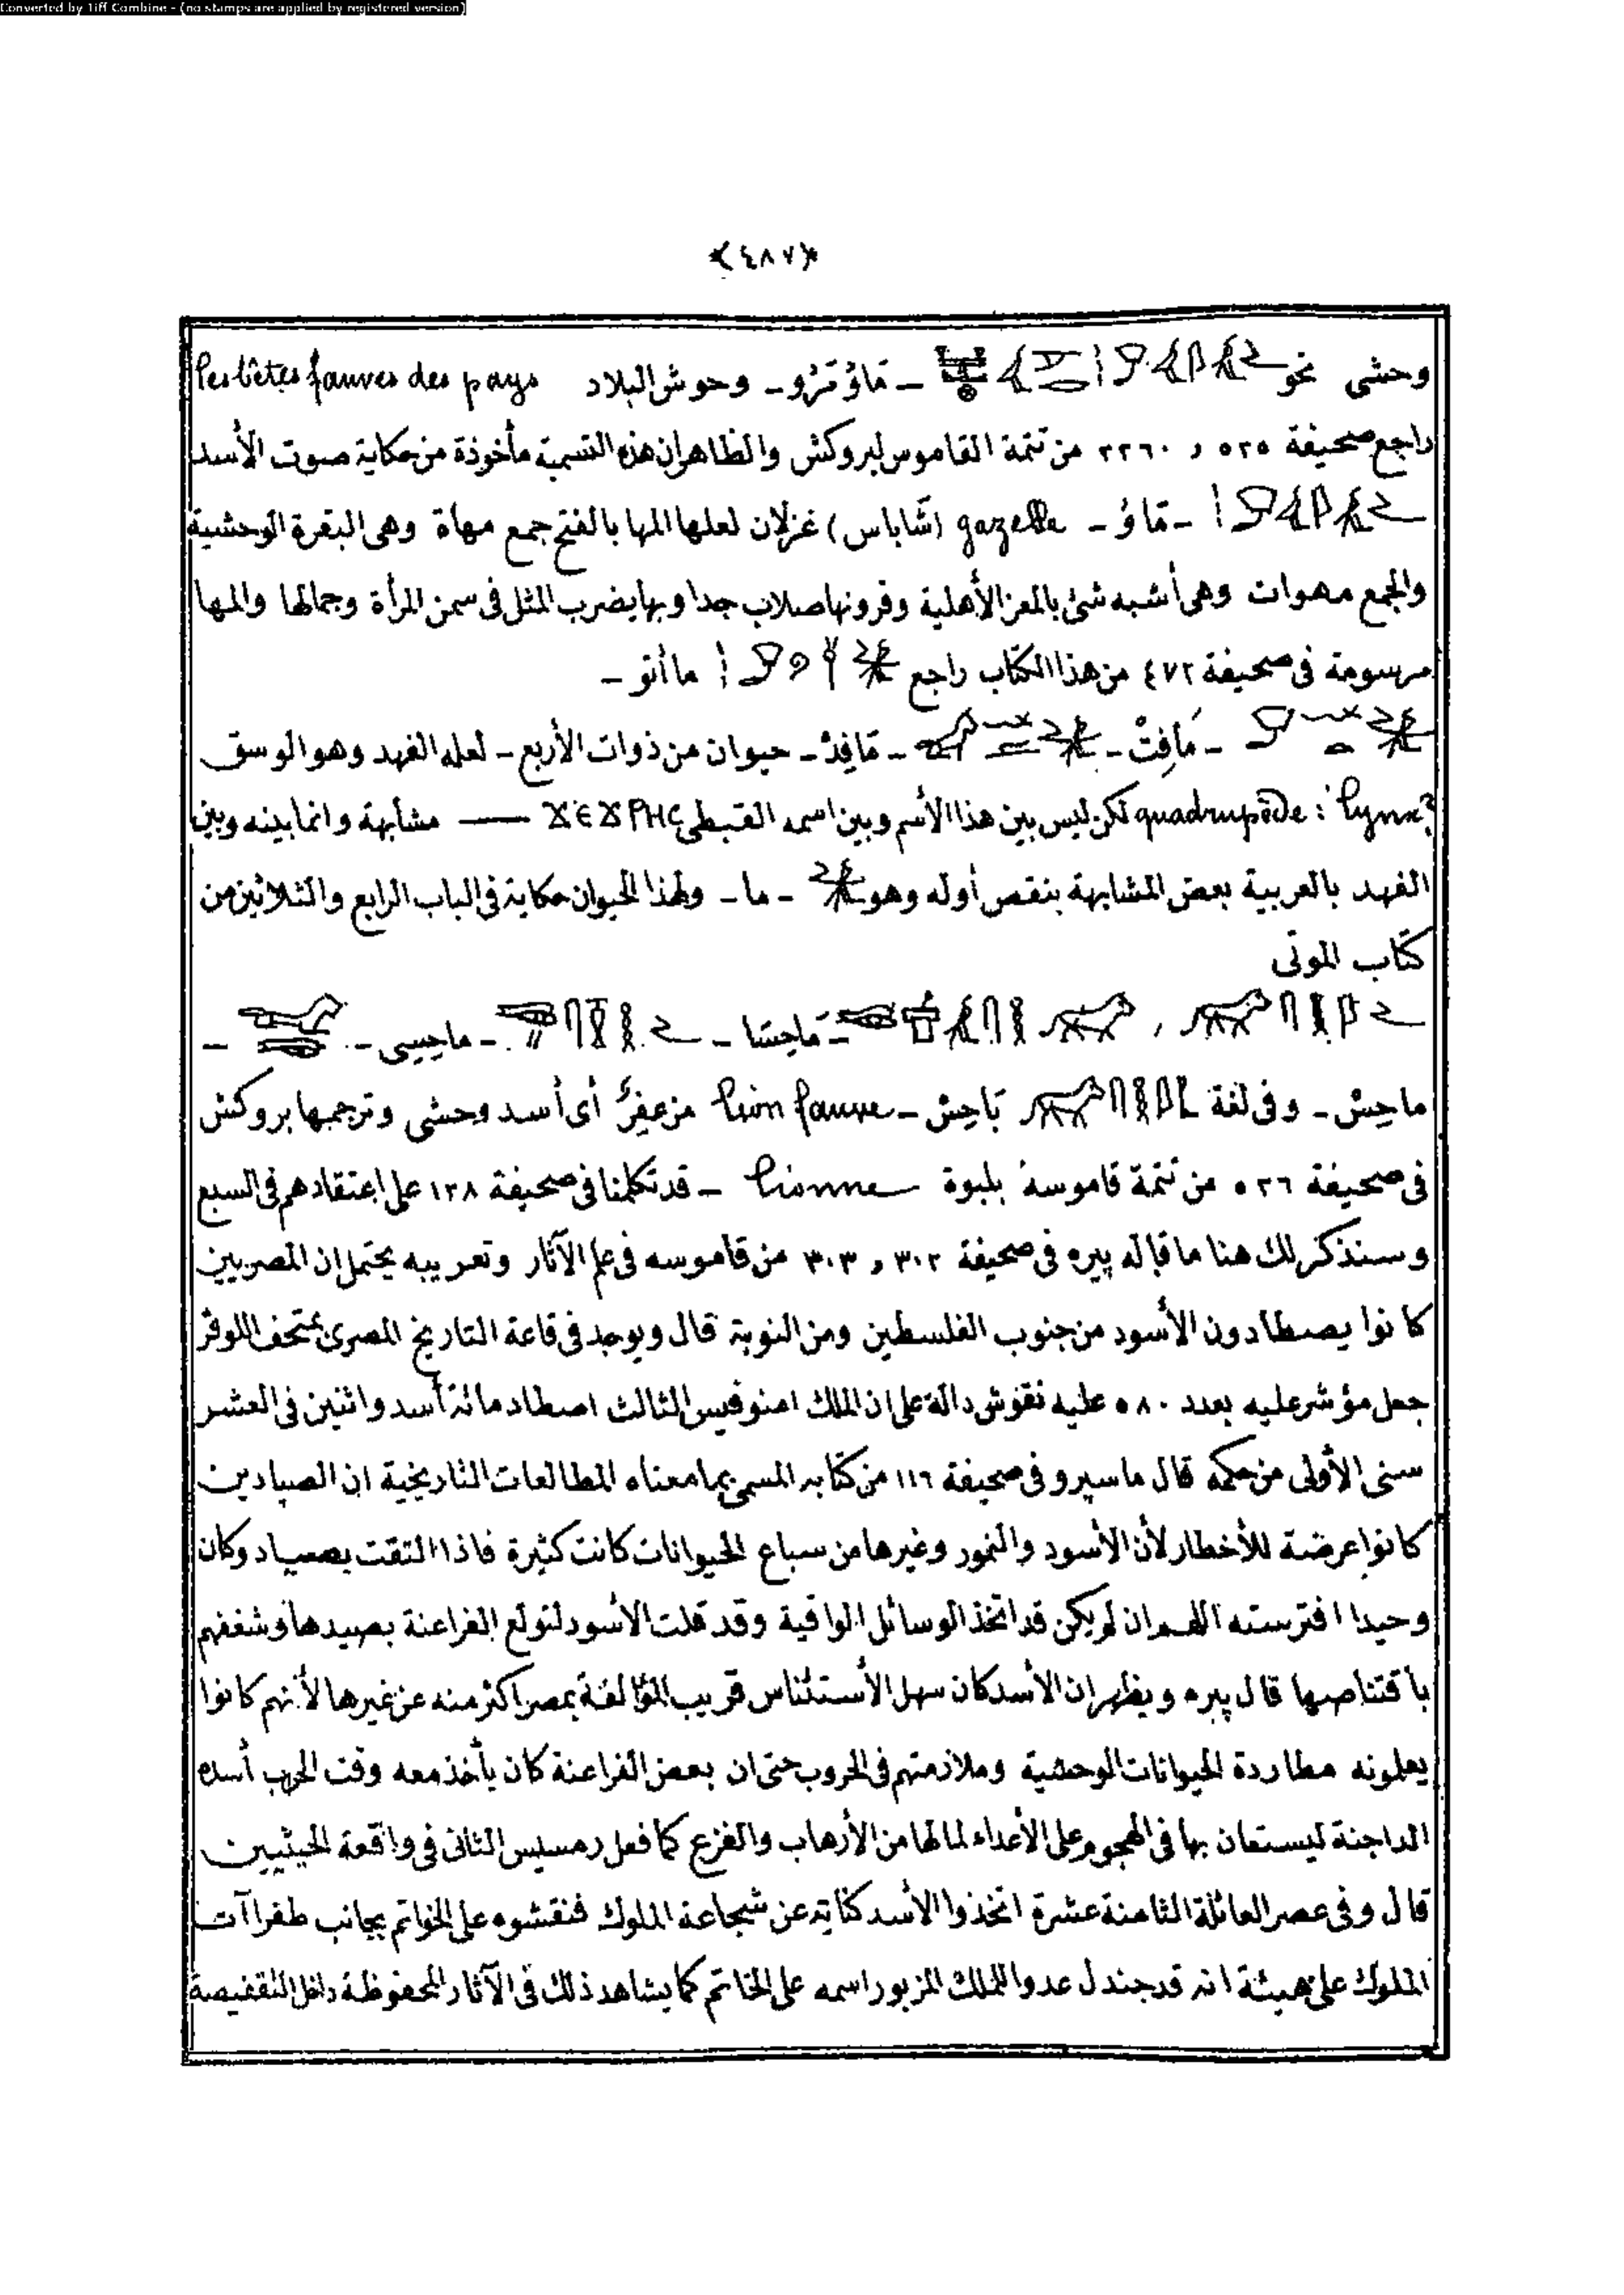 Converted by Tiff Combine - (no stamps are applied by registered version)
﴿٤٨٧﴾
وحشى نحو ـ مَاؤُ تَرُو ـ وحوش البلاد les bêtes fauves des pays
راجع صحيفة ٥٢٥ و ٢٢٦٠ من تتمة القاموس لبروكش والظاهر ان هذه التسمية مأخوذة من حكاية صوت الأسد
ـ مَاؤُ ـ gazelle (شاباس) غزلان لعلها المها بالفتح جمع مهاة وهى البقرة الوحشية
والجمع مهوات وهى أشبه شئ بالمعز الأهلية وقرونها صلاب جدا وبها يضرب المثل فى سمن المرأة وجمالها والمها
مرسومة فى صحيفة ٤٧٢ من هذا الكتاب راجع ماأتو ـ
ـ مَافِتْ ـ ـ مَافِدْ ـ حيوان من ذوات الأربع ـ لعله الفهد وهو الوسق
quadrupède : lynx? لكن ليس بين هذا الأسم وبين اسمه القبطى ـــ مشابهة وانما بينه وبين
الفهد بالعربية بعض المشابهة بنقص أوله وهو ـ ما ـ ولهذا الحيوان حكاية فى الباب الرابع والثلاثين من
كتاب الموتى
، ـ مَاحِسَا ـ ـ ماحِسى ـ ـ
ماحِسْ ـ وفى لغة بَاحِسْ ـ lion fauve مزعفِرٌ أى أسد وحشى وترجمها بروكش
فى صحيفة ٥٢٦ من تتمة قاموسه بلبوة lionne ـ قد تكلمنا فى صحيفة ١٣٨ على اعتقادهم فى السبع
وسنذكر لك هنا ما قاله پيره فى صحيفة ٣٠٢ و ٣٠٣ من قاموسه فى علم الآثار وتعريبه يحتمل ان المصريين
كانوا يصطادون الأسود من جنوب الفلسطين ومن النوبة قال ويوجد فى قاعة التاريخ المصرى بمتحف اللوفر
جعل مؤشر عليه بعدد ٥٨٠ عليه نقوش دالة على ان الملك امنوفيس الثالث اصطاد مائة أسد واثنين فى العشر
سنى الأولى من حكمه قال ماسپرو فى صحيفة ١١٦ من كتابه المسمى بما معناه المطالعات التاريخية ان الصيادين
كانوا عرضة للأخطار لأن الأسود والنمور وغيرها من سباع الحيوانات كانت كثيرة فاذا التقت بصياد وكان
وحيدا افترسته ان لم يكن قد اتخذ الوسائل الواقية وقد قلت الأسود لتولع الفراعنة بصيدها وشغفهم
باقتناصها قال پيره ويظهر ان الأسد كان سهل الأستئناس قريب المؤالفة بمصر اكثر منه عن غيرها لأنهم كانوا
يعلونه مطاردة الحيوانات الوحشية وملازمتهم فى الحروب حتى ان بعض الفراعنة كان يأخذ معه وقت الحرب أسده
الداجنة ليستعان بها فى الهجوم على الأعداء لما لها من الأرهاب والفزع كما فعل رمسيس الثانى فى واقعة الحيثيين
قال وفى عصر العائلة الثامنة عشرة اتخذوا الأسد كناية عن شجاعة الملوك فنقشوه على الخواتم بجانب طغراآت
الملوك على هيئة انه قد جندل عدوا للملك المزبور اسمه على الخاتم كما يشاهد ذلك فى الآثار المحفوظة داخل التقفيصة